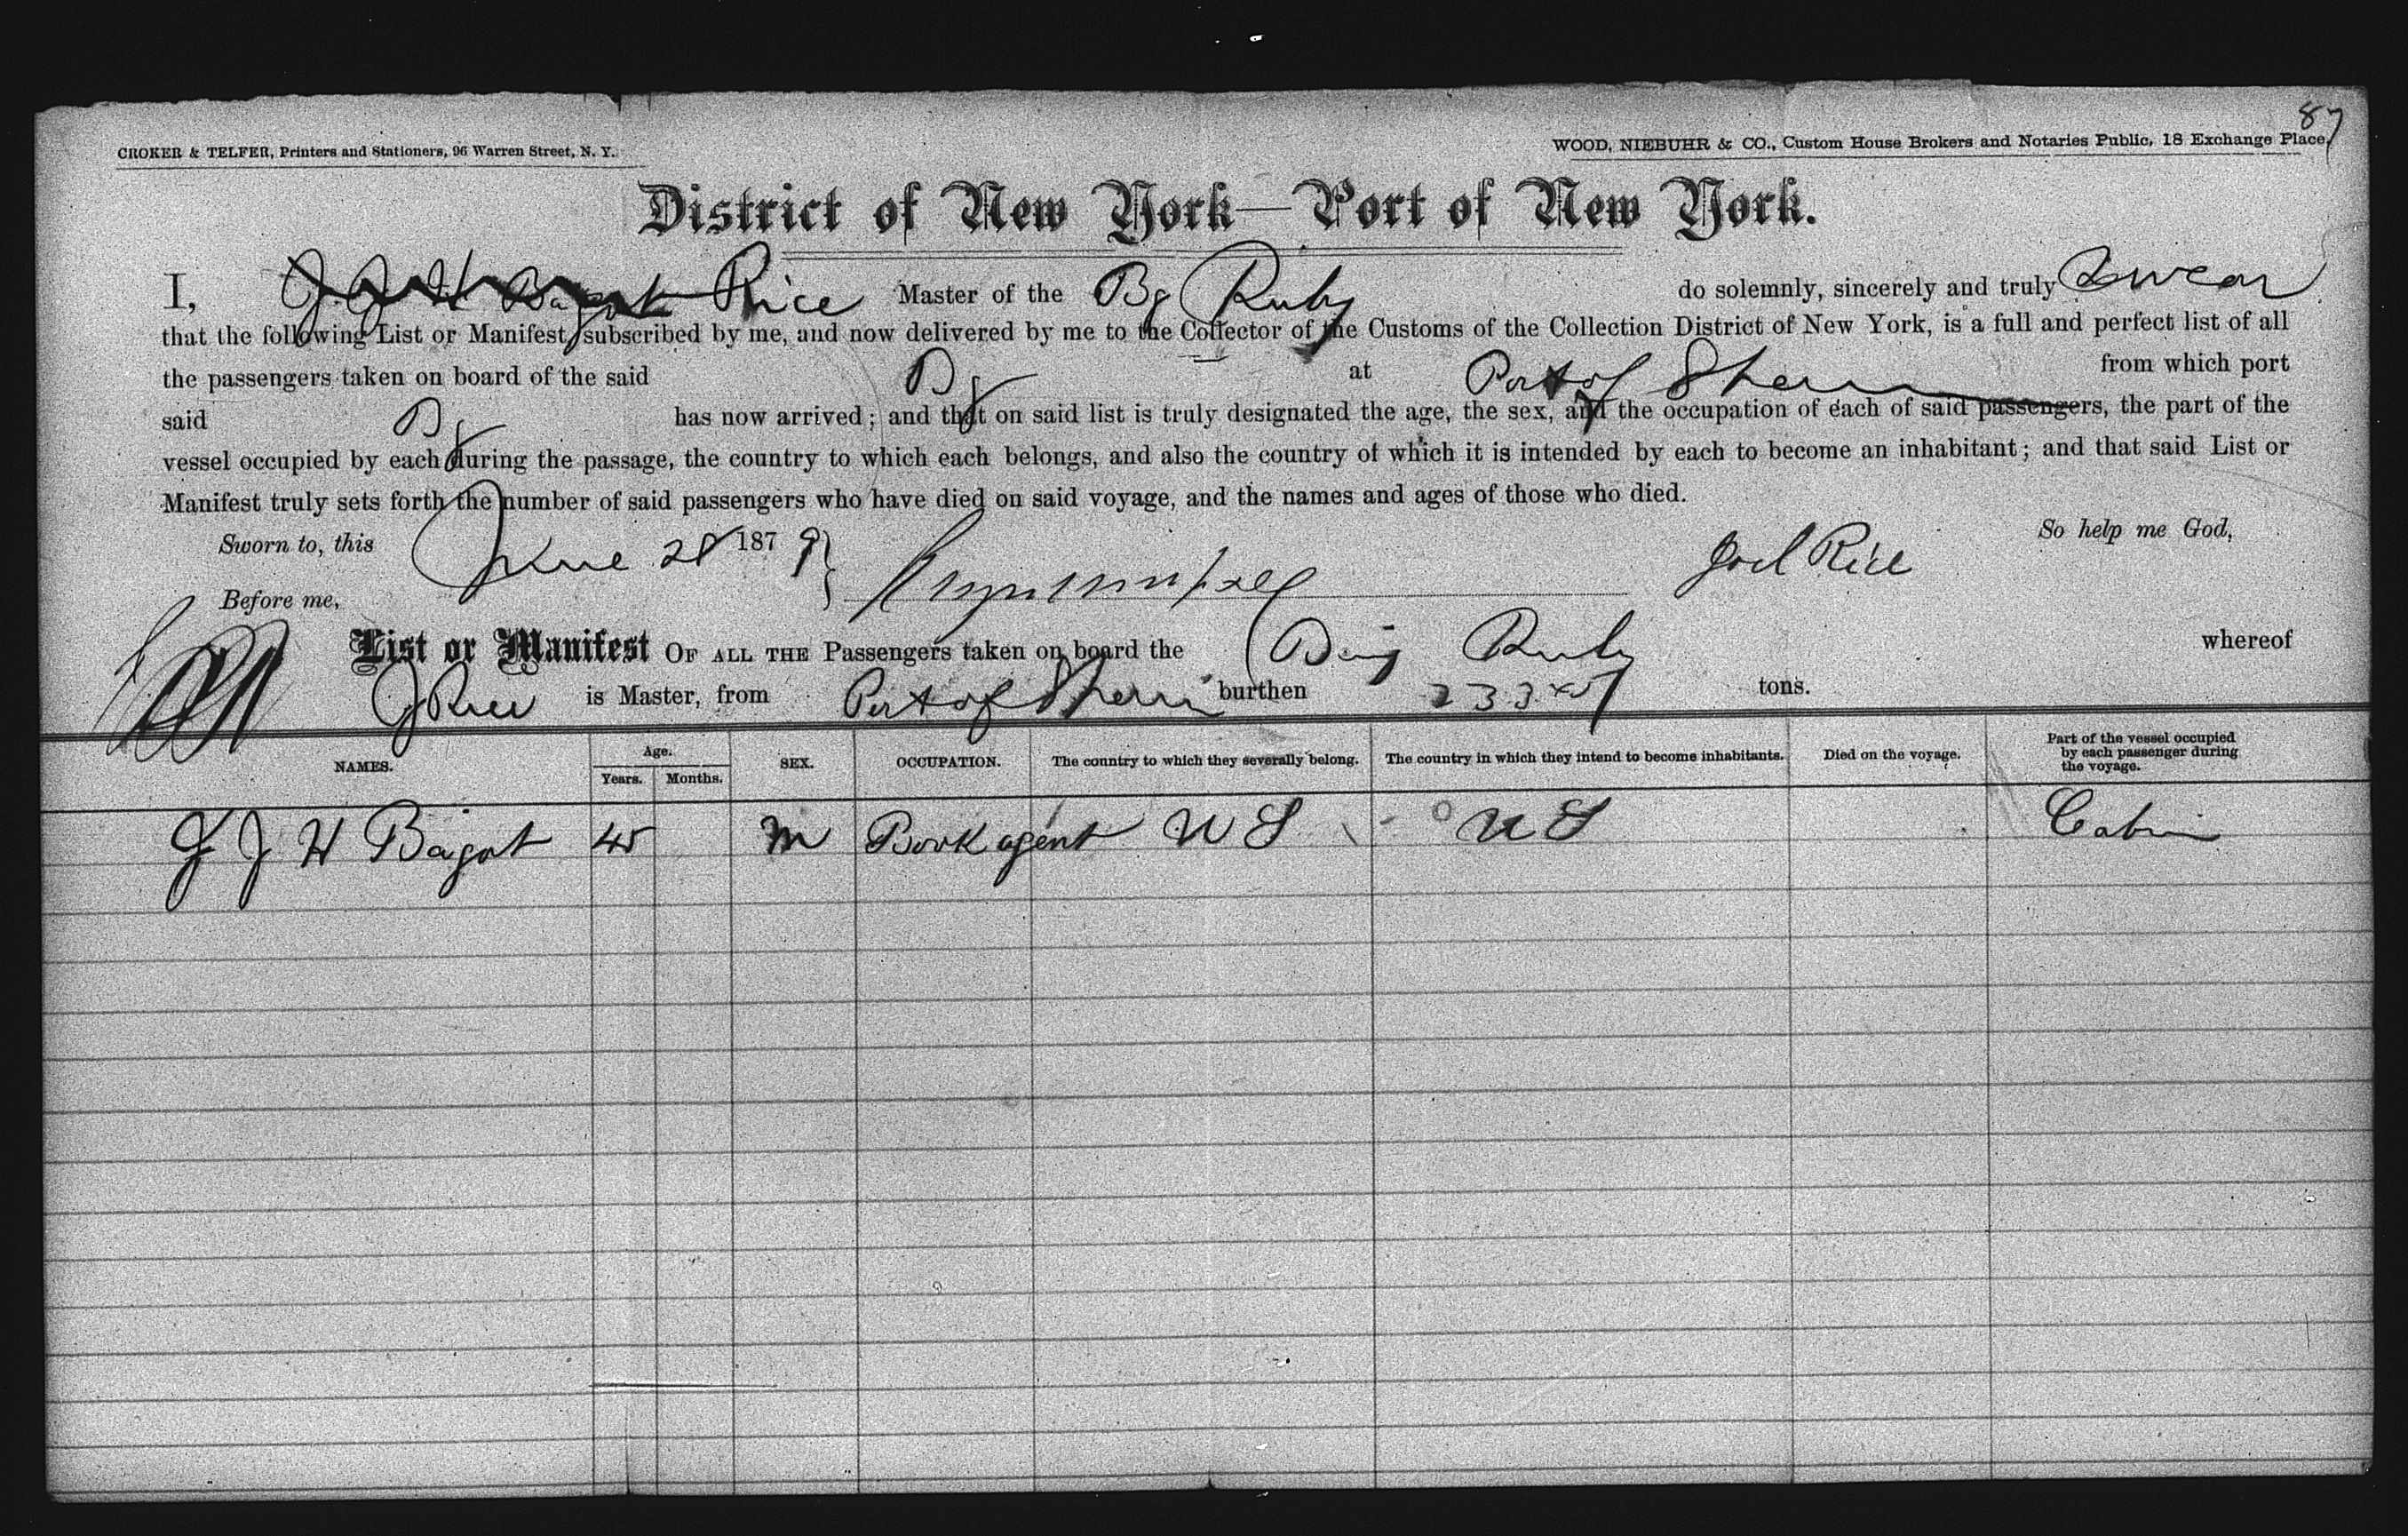 87
CROKER & TELFER, Printers and Stationers, 96 Warren Street, N. Y.
WOOD, NIEBUHR & CO., Custom House Brokers and Notaries Public, 18 Exchange Place,
District of New York—Port of New York.
I, Rice Master of the Bg Ruby do solemnly, sincerely and truly Swear
that the following List or Manifest, subscribed by me, and now delivered by me to the Collector of the Customs of the Collection District of New York, is a full and perfect list of all
the passengers taken on board of the said Bg at Port of from which port
said Bg has now arrived; and that on said list is truly designated the age, the sex, and the occupation of each of said passengers, the part of the
vessel occupied by each during the passage, the country to which each belongs, and also the country of which it is intended by each to become an inhabitant; and that said List or
Manifest truly sets forth the number of said passengers who have died on said voyage, and the names and ages of those who died.
So help me God,
Sworn to, this June 28 1879
Joel Rice
Before me,
List or Manifest OF ALL THE Passengers taken on board the Brig Ruby whereof
J Rice is Master, from Port of burthen 233 tons.
NAMES. Age. Years. Months. SEX. OCCUPATION. The country to which they severally belong. The country in which they intend to become inhabitants. Died on the voyage. Part of the vessel occupied by each passenger during the voyage.
J J H Bagot 45 M Book agent U S U S Cabin